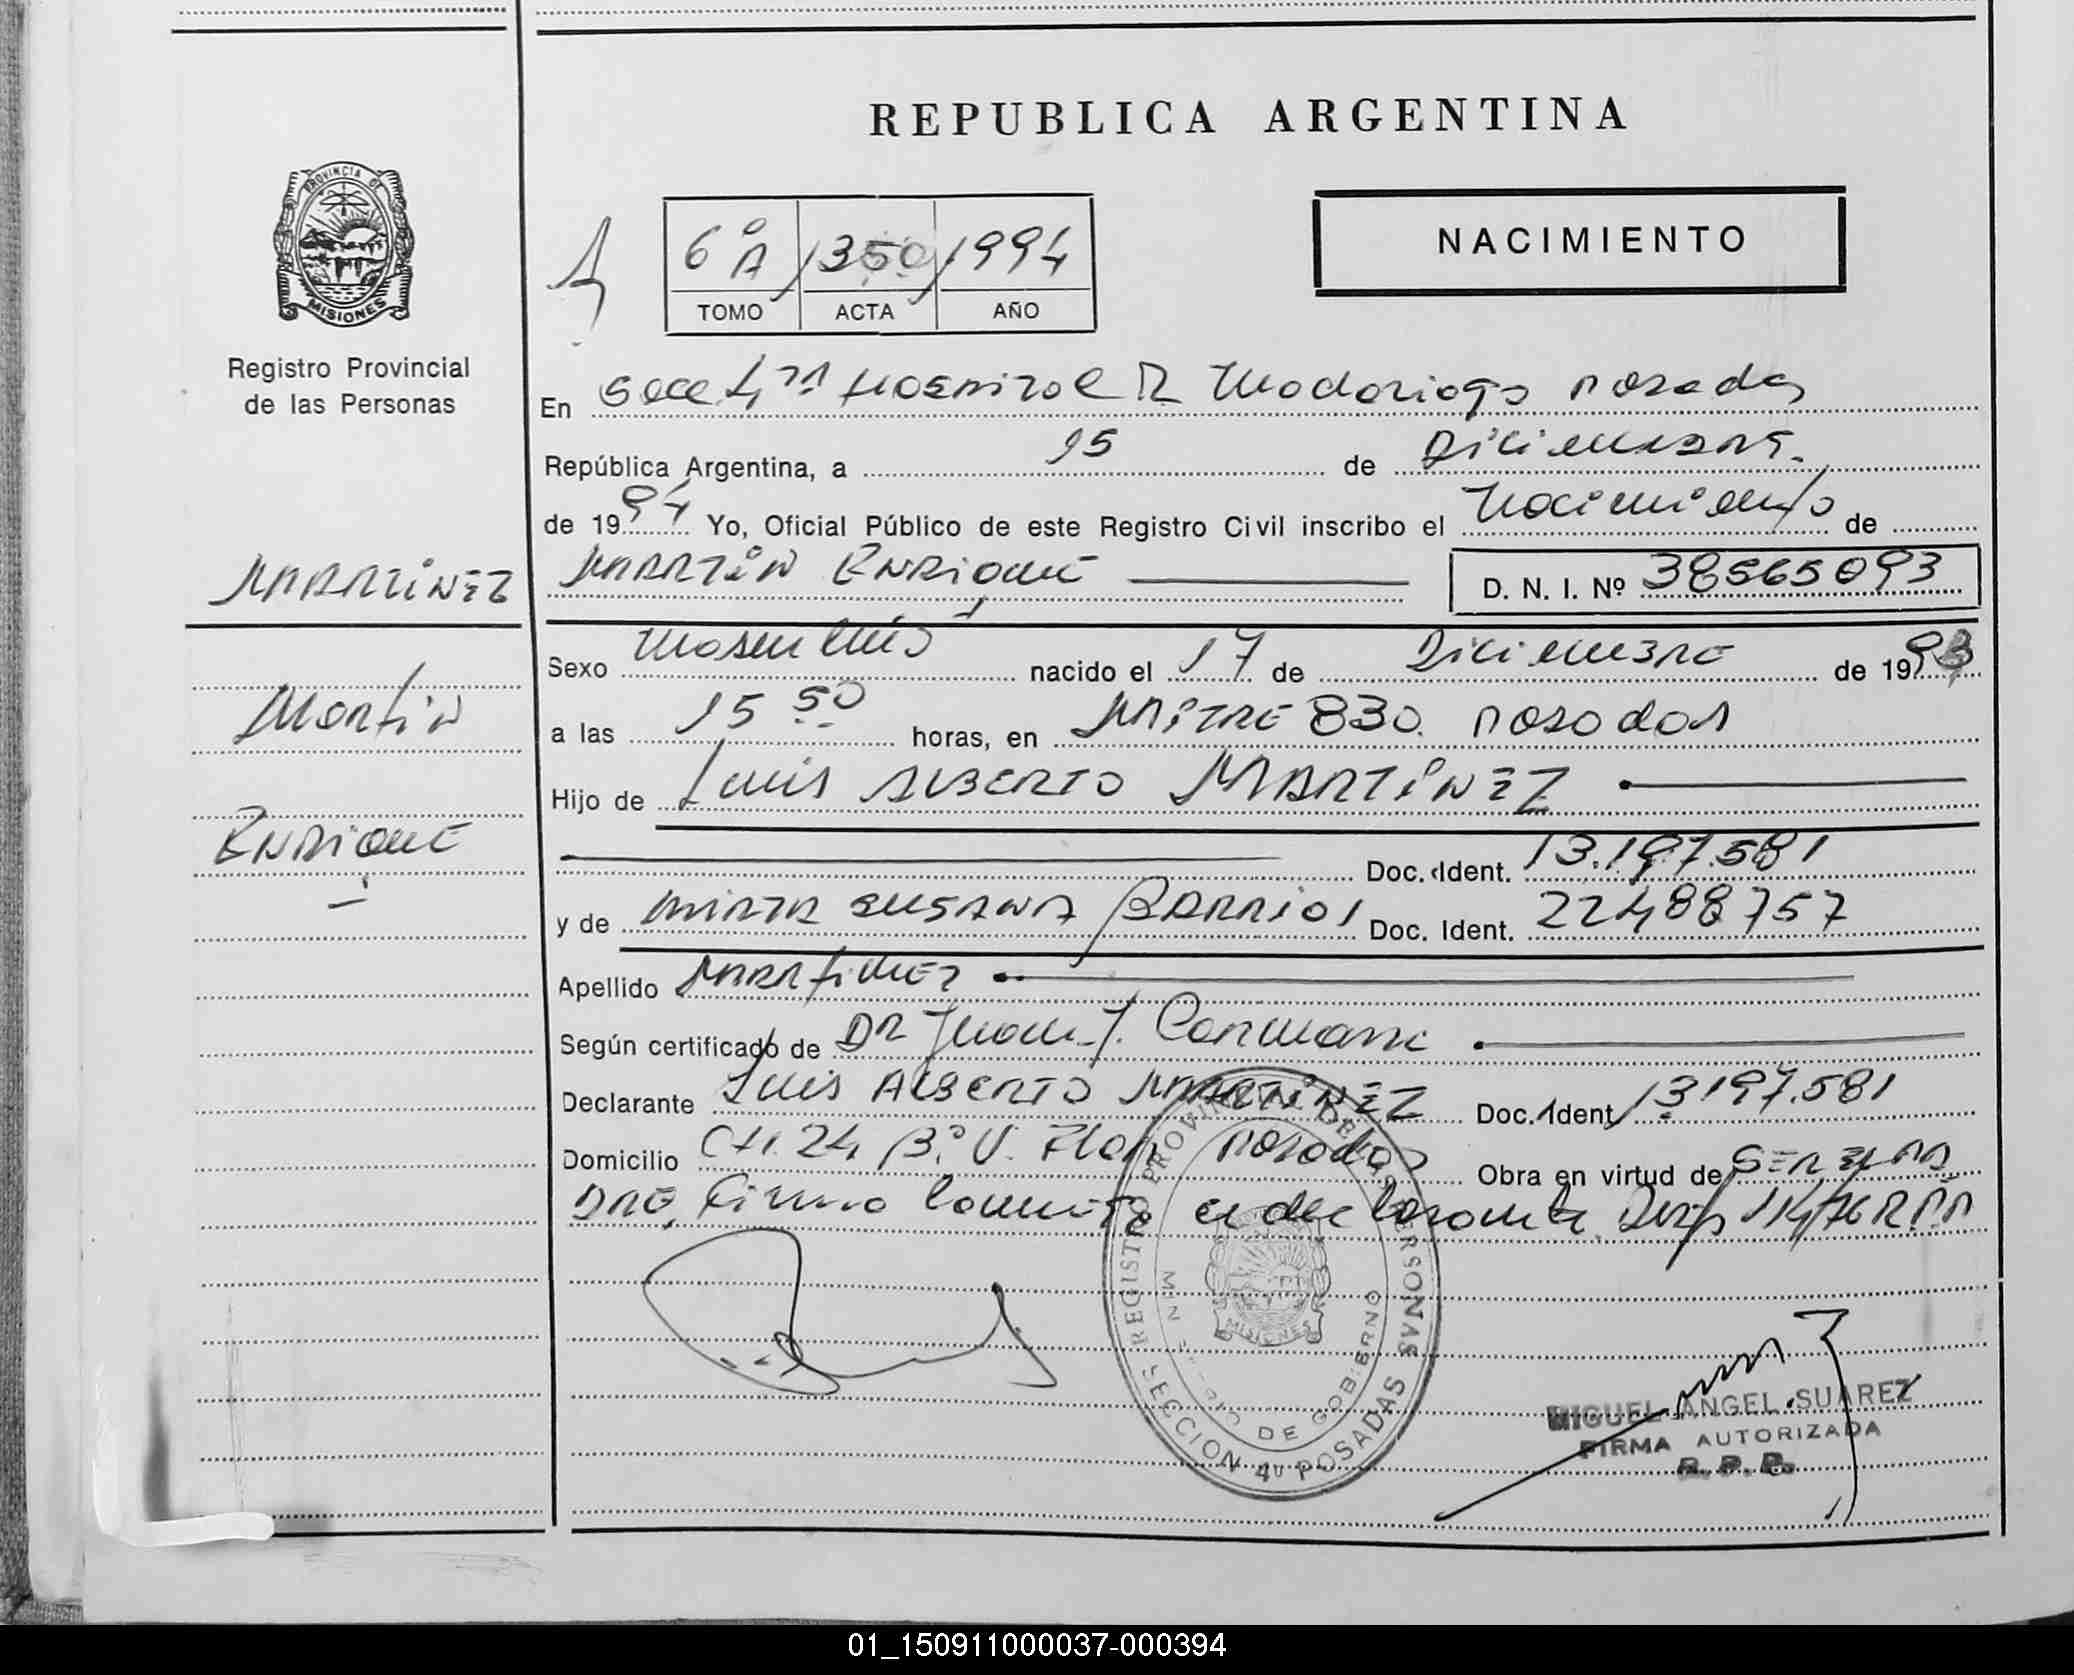 REPUBLICA ARGENTINA
PROVINCIA DE
MISIONES
Registro Provincial
de las Personas
NACIMIENTO
6º A 1350 1994
TOMO ACTA AÑO
En Secc 4ta Hospital R Madariaga Posadas
República Argentina, a 15 de Diciembre.
de 1994 Yo, Oficial Público de este Registro Civil inscribo el Nacimiento de
MARTINEZ
MARTIN ENRIQUE D. N. I. Nº 38565093
Martin
Enrique
Sexo Masculino nacido el 17 de Diciembre de 1993
a las 15 50 horas, en MITRE 830. Posadas
Hijo de Luis ALBERTO MARTINEZ
Doc. Ident. 13.197.581
y de MIRTA SUSANA BARRIOS Doc. Ident. 22488757
Apellido MARTINEZ
Según certificado de DR Juan J.
Declarante Luis ALBERTO MARTINEZ Doc. Ident 13197.581
Domicilio CH. 24 Bº V. Posadas Obra en virtud de
DRE, Firma el declarante.
REGISTRO PROVINCIAL DE LAS PERSONAS
MINISTERIO DE GOBIERNO
MISIONES
SECCION 4ta POSADAS
MIGUEL ANGEL SUAREZ
FIRMA AUTORIZADA
R. P. P.
01_150911000037-000394